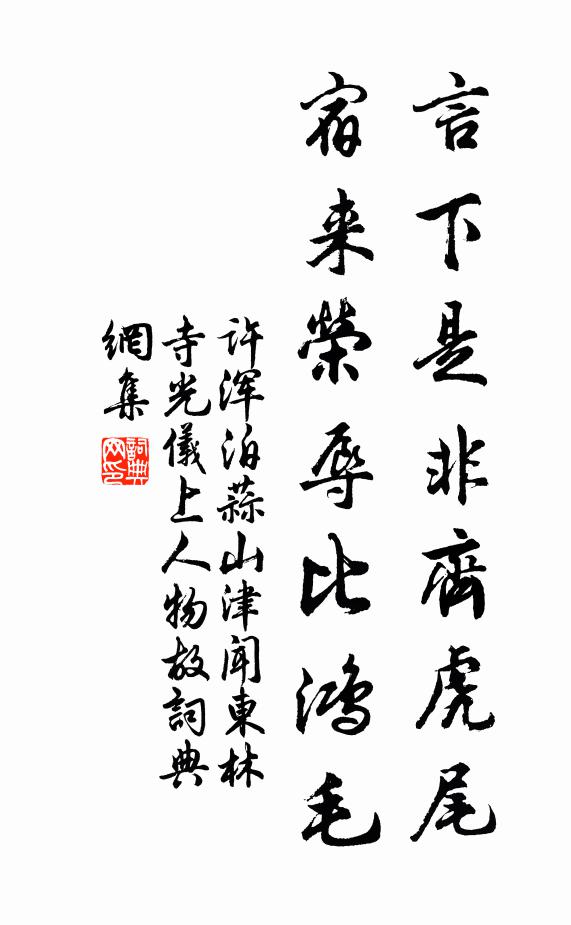 言下是非齊虎尾
宿来榮辱比鴻毛
許渾泊蒜山津聞東林
寺光儀上人物故詞典
網集
詞典網印